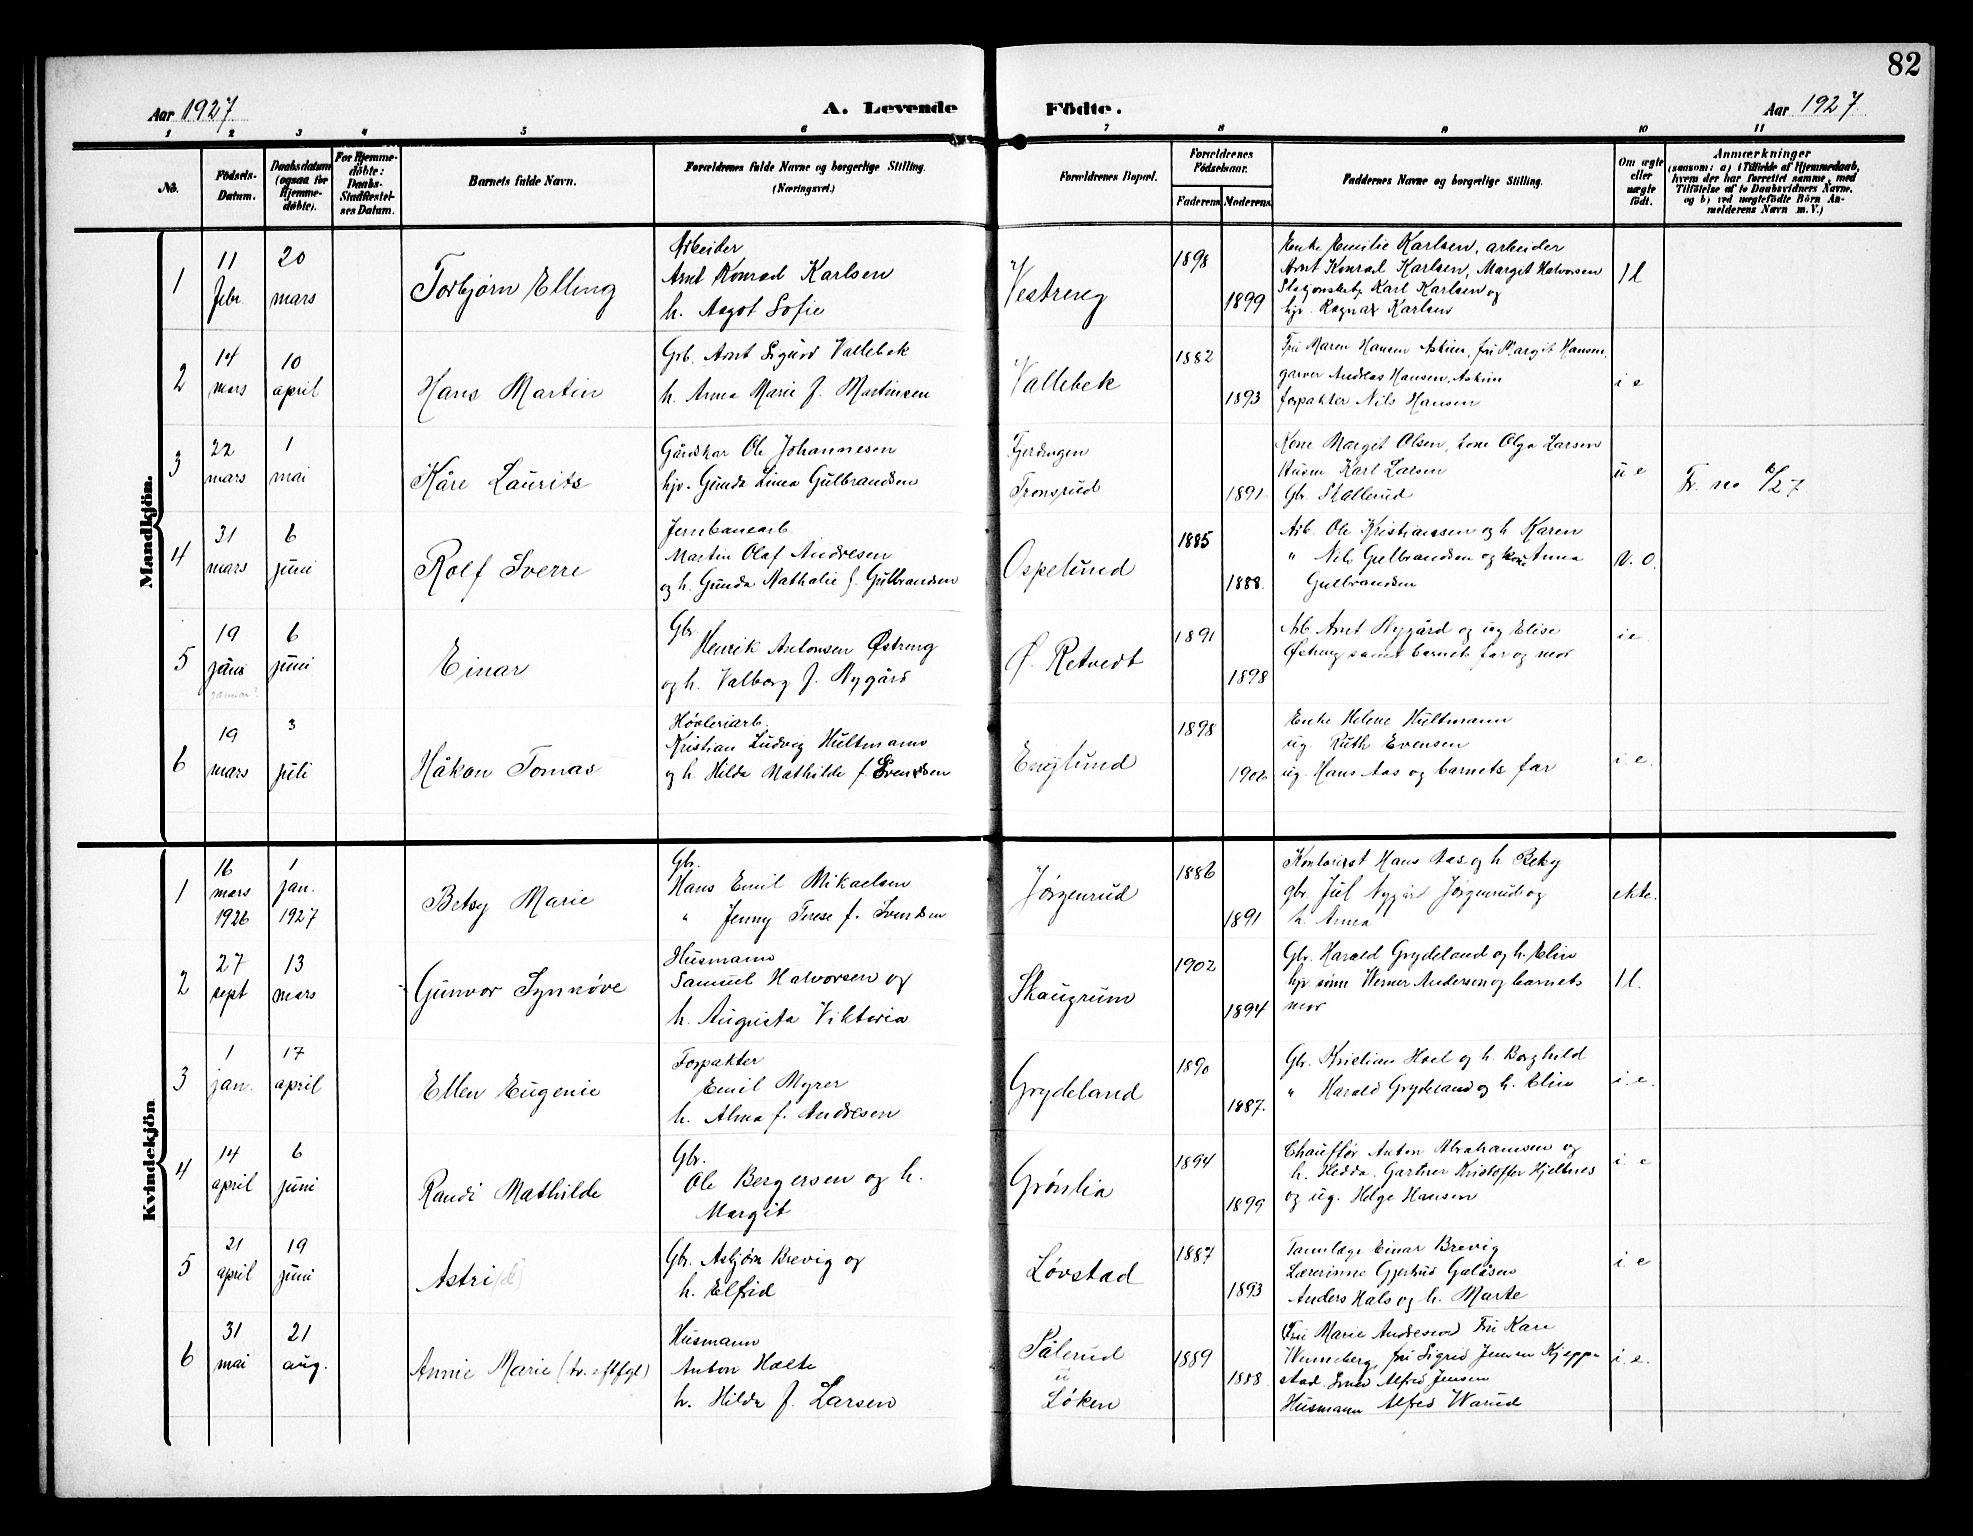 82
Aar 1927
A. Levende Födte.
Aar 1927
1 2 3 4 5 6 7 8 9 10 11
No.
Födsels-Datum.
Daabsdatum (ogsaa for Hjemme-döbte).
For Hjemme-döbte: Daabs-Stadfæstel-ses Datum.
Barnets fulde Navn.
Forældrenes fulde Navne og borgerlige Stilling. (Næringsvei.)
Forældrenes Bopæl.
Forældrenes Födselsaar.
Faderens Moderens
Faddernes Navne og borgerlige Stilling.
Om ægte eller uægte födt.
Anmærkninger
(saasom: a) i Tilfælde af Hjemmedaab, hvem der har forrettet samme, med Tilföielse af to Daabsvidners Navne, og b) ved uægtefödte Börn An-melderens Navn m. V.)
Mandkjön.
1
11 febr
20 mars
Torbjørn Elling
Arbeider
Arnt Konrad Karlsen
h. Aagot Sofie
Vestreng
1898
1899
Enke Emilie Karlsen, arbeider
Arnt Konrad Karlsen, Margit Halvorsen
Karl Karlsen og
hjv. Ragnar Karlsen
2
14 mars
10 april
Hans Martin
Grb. Arnt Sigurd Vallebek
h. Anna Marie f. Martinsen
Vallebek
1882
1893
Fru Maren Hansen Askim, fru Margit Hansen,
garver Andreas Hansen, Askim
forpakter Nils Hansen
i e
3
22 mars
1 mai
Kåre Laurits
Gårdskar Ole Johannesen
hjv. Gunda Linea Gulbrandsen
Fjerdingen
Tronsrud
1891
Kone Marget Olsen, kone Olga Larsen
Husm Karl Larsen
Gbr Skallerud
u e
4
31 mars
6 juni
Rolf Sverre
Jernbanearb.
Martin Olaf Andresen
og h. Gunda Nathalie f. Gulbrandsen
Ospelund
1885
1888.
Arb. Ole Kristiansen og h Karen
" Nils Gulbrandsen og kone Anna
Gulbrandsen
5
19 juni
januar?
6 juni
Einar
Gbr
Henrik Antonsen Østreng
og h. Valborg f. Nygård
Ø. Retvedt
1891
1898
Arb Arnt Nygård og ug Elise
Østreng samt barnets far og mor
i e
6
19 mars
3 juli
Håkon Tomas
Høvleriarb.
Kristian Ludvig Hultmann
og h. Hilda Mathilde f Svendsen
Englund
1898
1902
Enke Helene Hultmann
ug. Ruth Evensen
ug. Hans Aas og barnets far
i. e.
Kvindekjön
1
16 mars 1926
1 jan. 1927
Betsy Marie
Gbr.
Hans Emil Mikaelsen
" Jenny Terese f. Svendsen
Jørgenrud
1886
1891
Kontorist Hans Aas og h Betsy
gbr Jul Nygård Jørgenrud og
h. Anna
ekte.
2
27 sept
13 mars
Gunvor Synnøve
Husmann
Samuel Halvorsen og
h. Augusta Viktoria
Skaugrum
1902
1894
Gbr. Harald Grydeland og h. Elin
Werner Andersen og barnets
mor
3
1 jan.
17 april
Ellen Eugenie
Forpakter
Emil Myrer
h. Alma f. Andresen
Grydeland
1890
1887.
Gbr. Kristian Hoel og h. Borghild
" Harald Grydeland og h. Elin
i. e.
4
14 april
6 juni
Randi Mathilde
Gbr.
Ole Bergersen og h.
Margit
Grønlia
1894
1899
Chauffør Anton Abrahamsen og
h. Hedda. Gartner Kristoffer Hjeltnes
og ug. Helge Hansen
i. e
5
21 april
19 juni
Astri(d)
Gbr. Asbjørn Brevig og
h. Elfrid
Løvstad
1887
1893
Tannlæge Einar Brevig
Lærerinne Gjertrud Galåsen
Anders Hals og h. Marte
i. e
6
31 mai
21 aug.
Annie Marie
Husmann
Anton Holte
h. Hilda f. Larsen
Pålerud
u
Løken
1889
1888
Fru Marie Andresen Fru Kare
Wenneberg, fru Sigrid Jensen Kjeppe
stad. Alfred Jensen
Husmann Alfred Warud
i. e.